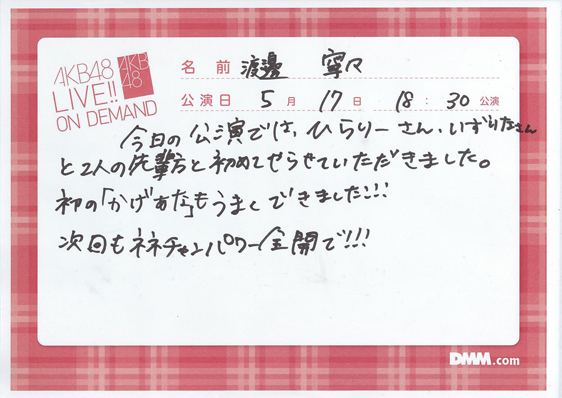 AKB48
LIVE!!
ON DEMAND
AKB
48
名前 渡邊 寧々
公演日 5月17日 18:30公演
今日の公演では、ひらりーさん、いずりなさん
と2人の先輩方と初めてやらせていただきました。
初の「かげあな」もうまくできました!!!
次回もネネチャンパワー全開で!!!
DMM.com